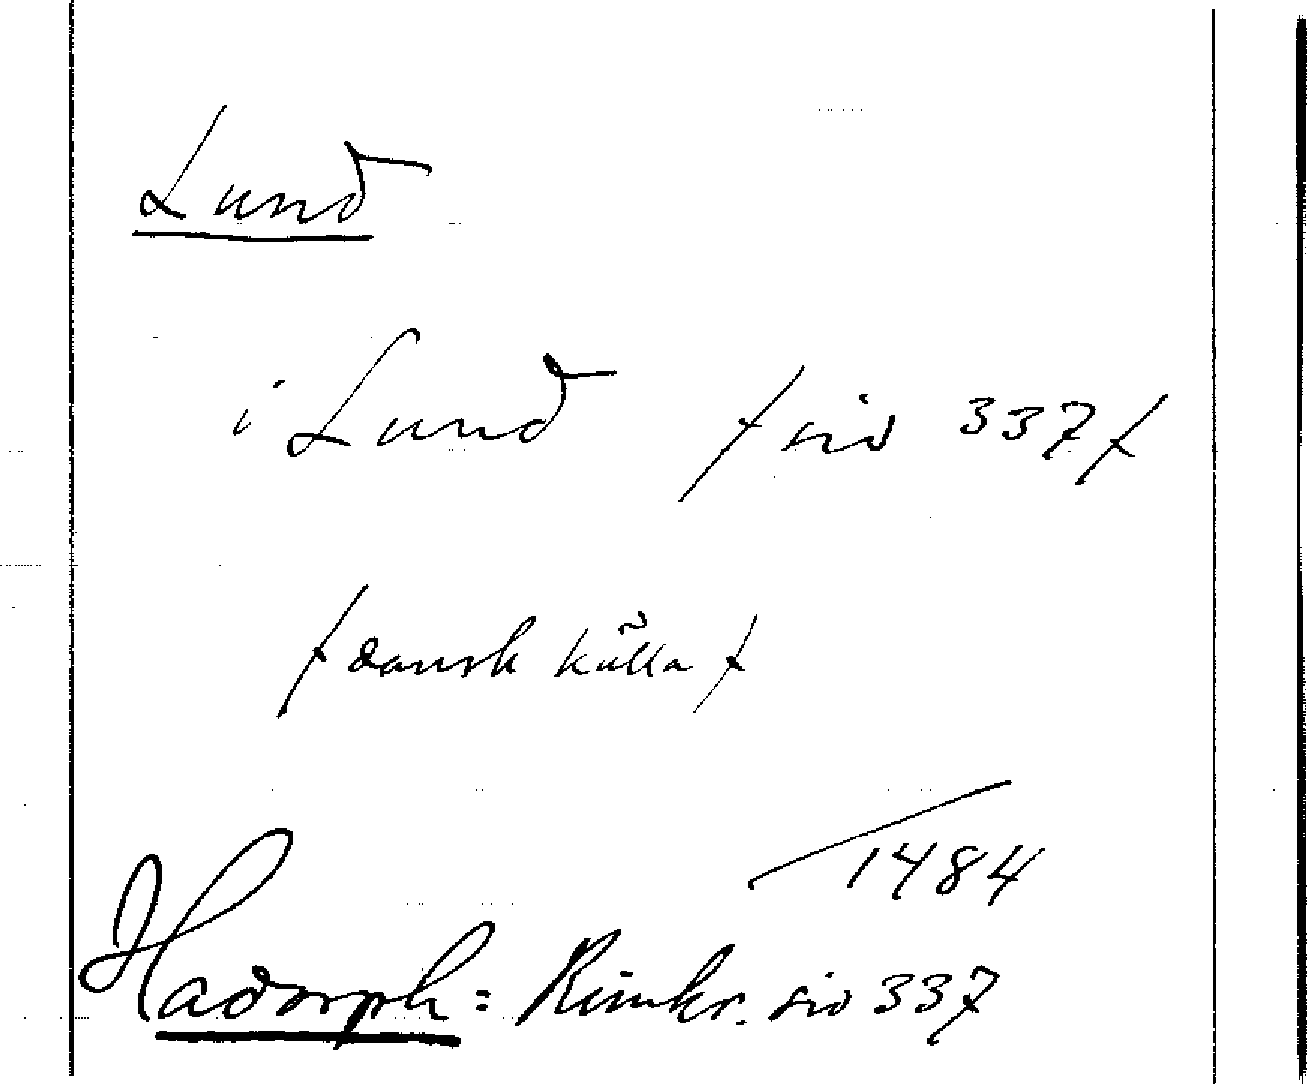 Lund
i Lund /sid 337/
/dansk källa/
1484
Hadorph: Rimkr. sid 337